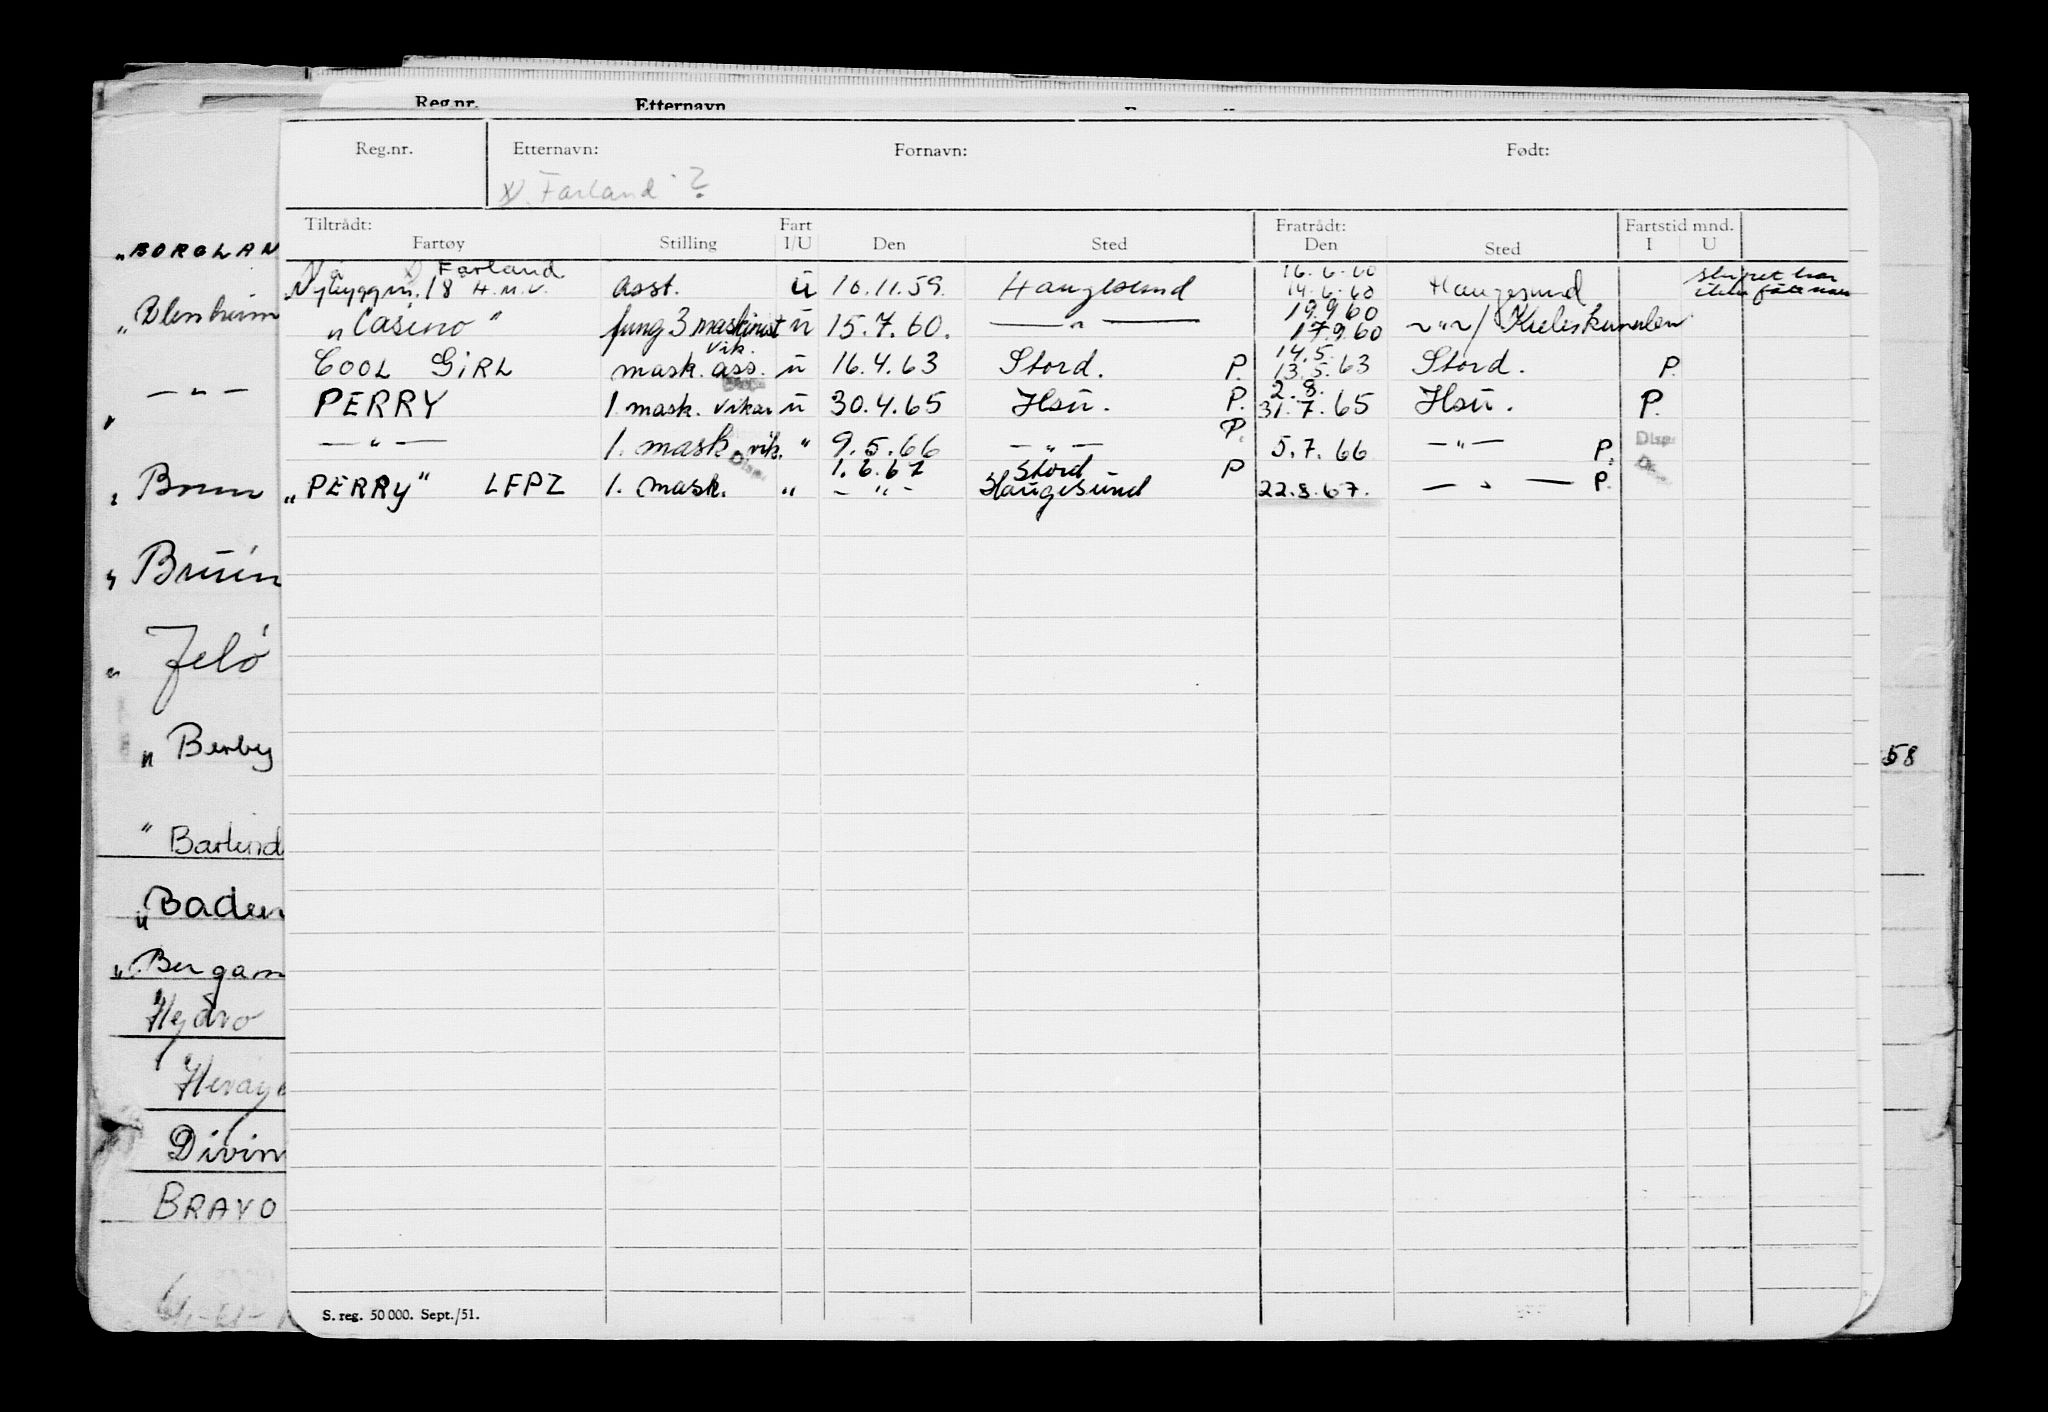 Reg.nr. Etternavn
Reg.nr. Etternavn: Fornavn: Født:
Farland ?
Tiltrådt: Fart Fratrådt: Fartstid mnd.
Fartøy Stilling I/U Den Sted Den Sted I U
Farland 16.6.60
Nybyggnr. 18 H.M.V. asst. u 10.11.59. Haugesund 14.6.60 Haugesund
19.9.60
"Casino" fung 3 maskinist u 15.7.60. — " — 17.9.60 ~ " ~ / Kielerkanalen
vik. 14.5.
COOL GIRL mask. ass. u 16.4.63 Stord. P. 13.5.63 Stord. P.
2.8.
PERRY 1. mask. vikar u 30.4.65 Hsu. P. 31.7.65 Hsu. P.
— " — 1. mask. vik. " 9.5.66 — " — P. 5.7.66 — " — P. Disp.
1.6.67 Stord P
"PERRY" LFPZ 1. mask. " — " — Haugesund 22.8.67. — " — P.
S. reg. 50 000. Sept./51.
"BORGLAN
"Blenheim
— " —
" Brun
" Bruin
" Jelö
" Berby
" Barlind
"Baden
"Bergam
Hydro
Divin
BRAVO
58